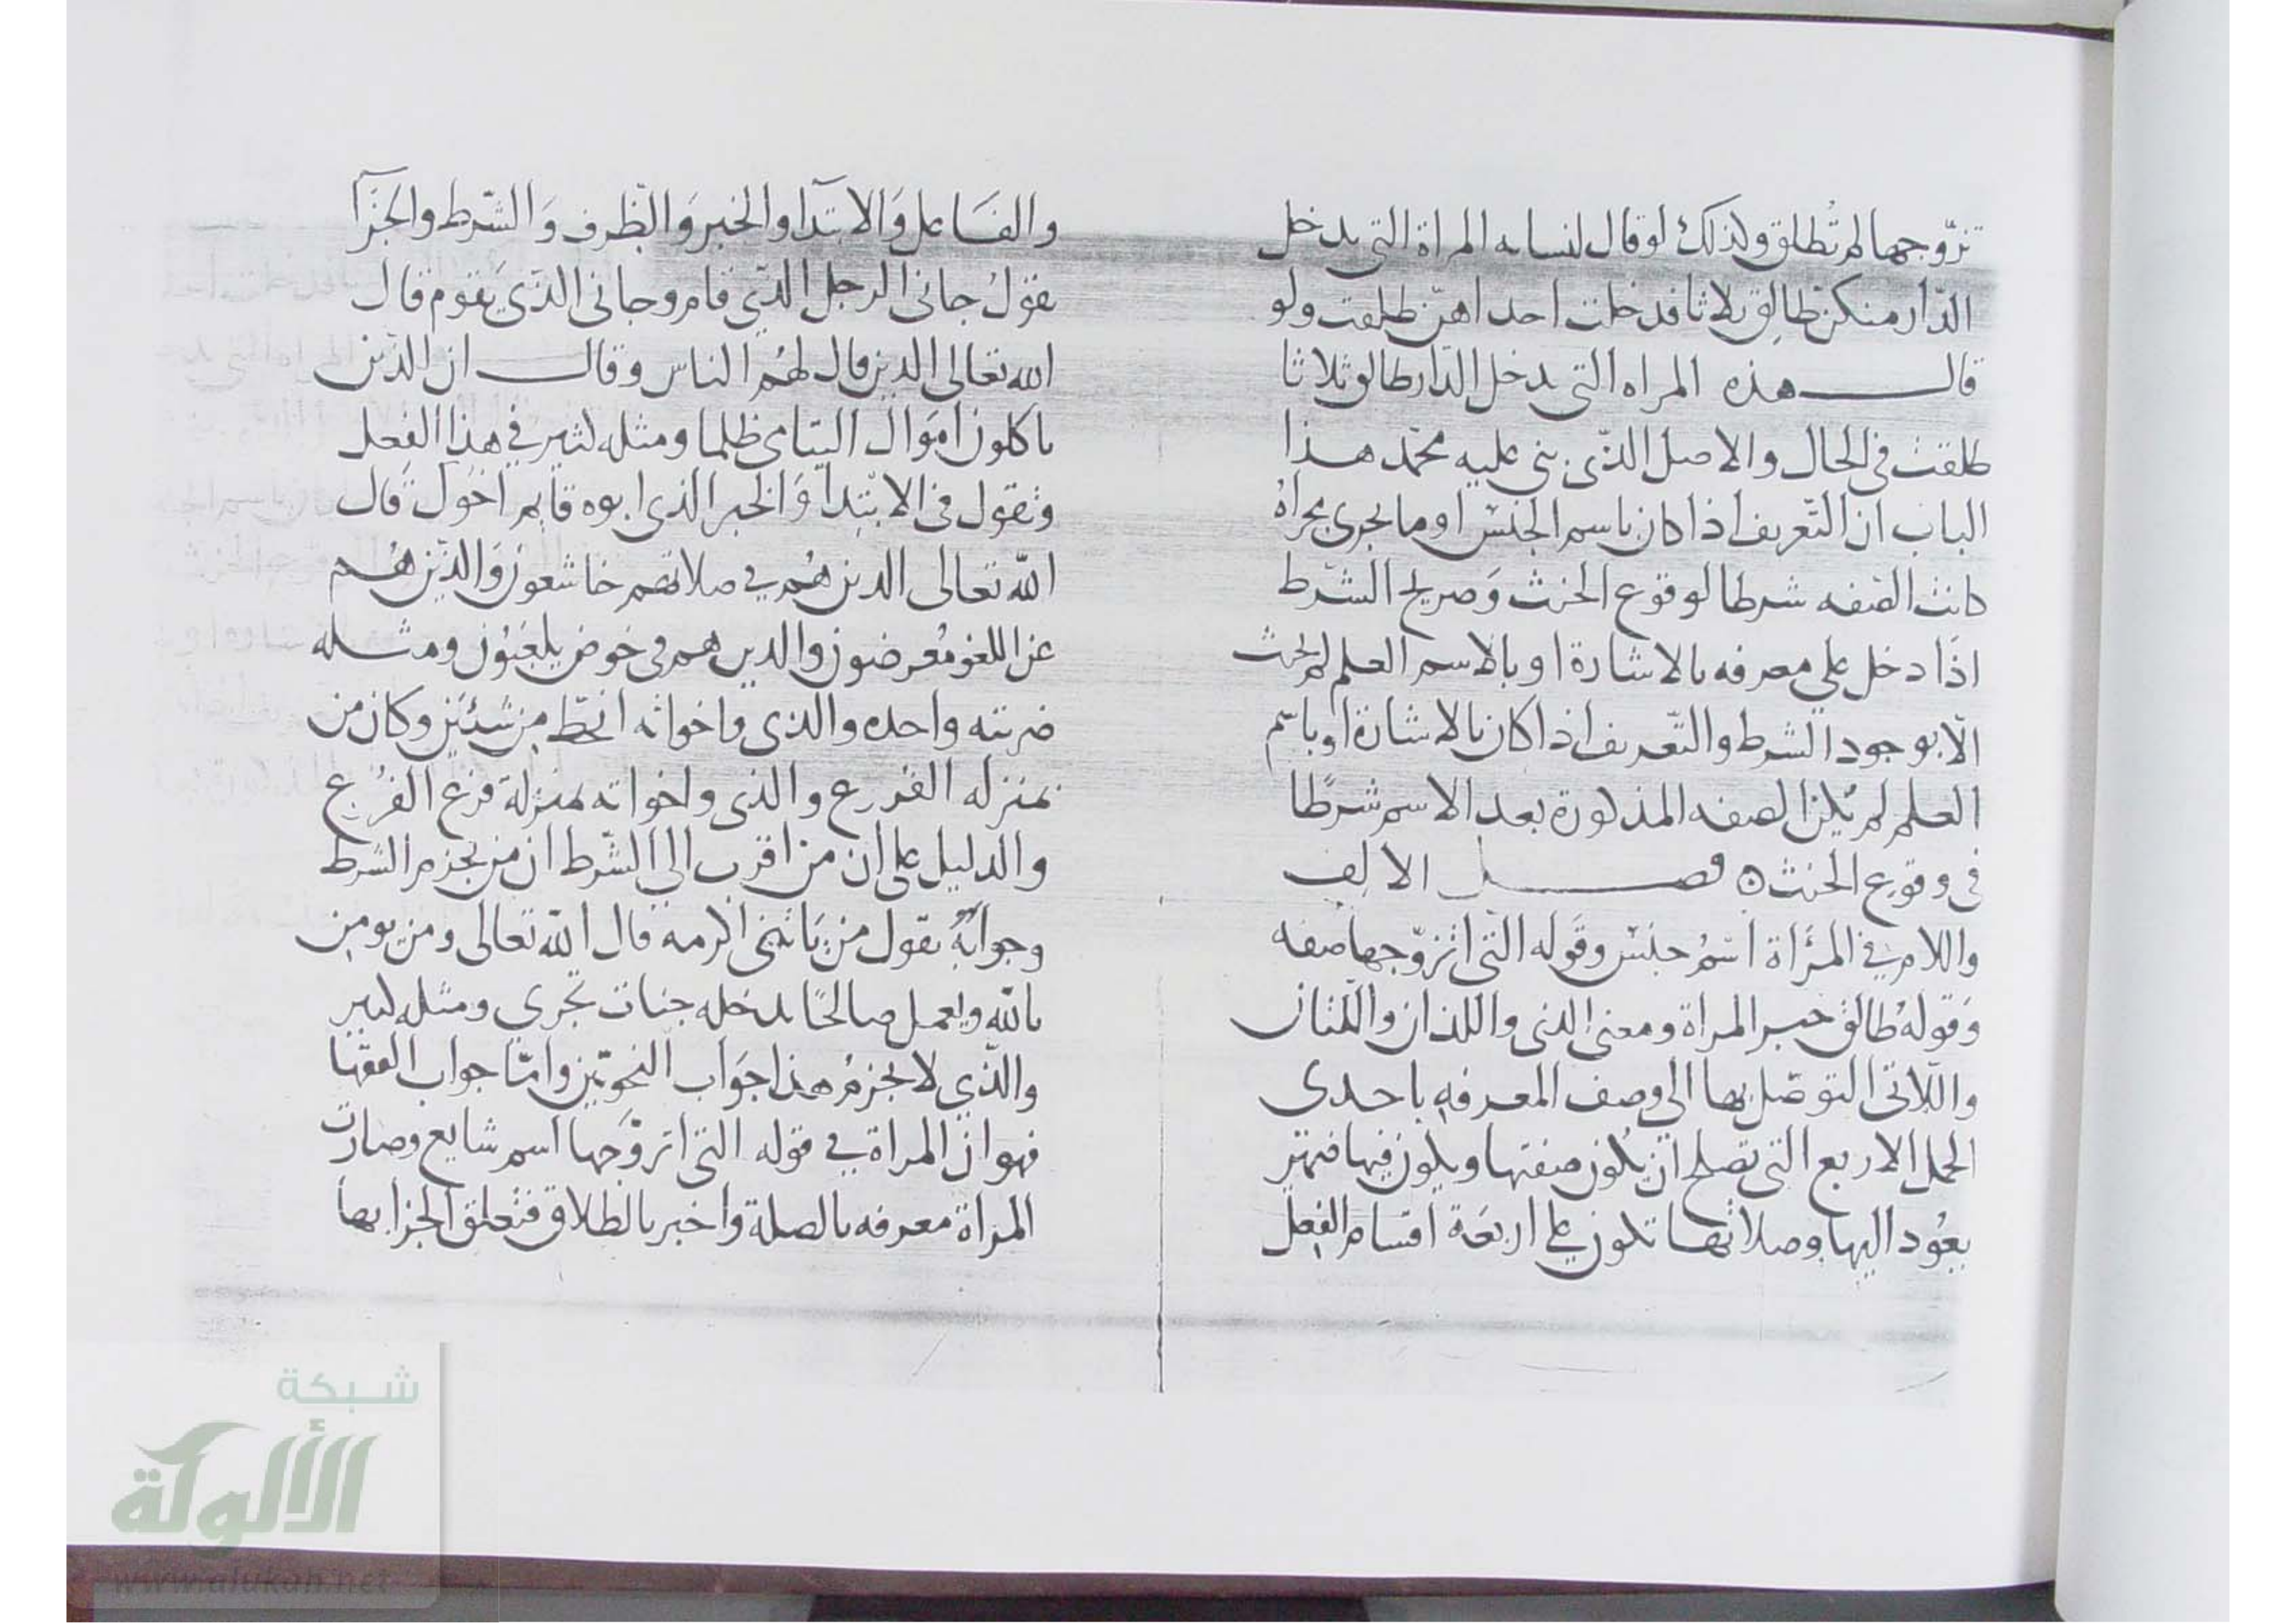 تزوجها لم تُطلق ولذلك لو قال لنسايه المراة التي تدخل
الدّار منكنّ طالِق ثلاثا فدخلت احداهنّ طلقت ولو
قال هذه المراه التي تدخل الدّار طالق ثلاثا
طلقت في الحال والاصل الذّي بني عليه محمّد هذا
الباب ان التّعريف اذا كان باسم الجنس او ما يجري مجراهُ
كانت الصّفه شرطا لوقوع الحنث وَصريح الشّرط
اذَا دخل علي معرفه بالاشارة او بالاسم العلم لم يحنث
الّا بوجود الشرط والتّعريف اذا كان بالاشارة او باسم
العلم لم يكن الصفه المذكورة بعد الاسم شرطًا
في وقوع الحنث ه فصل الالِف
واللام في المرَأة اسمُ جنس وقَوله التي اتزوّجها صفه
وَقولهُ طالق خبر المراة ومعنى الذي واللذان واللتان
واللّاتى التوصّل بها الى وصف المعرفه باحدى
الجمل الاربع التي تصلح ان يكون صفتها ويكون فيها ضمير
يعُود اليها وصلاتها تكون علي اربعَة اقسام الفِعل
والفَاعل وَالابتدآ والخبر وَالظّرف وَالشّرط والجَزآ
تقولُ جانى الرجل الذّي قام وجانى الذّي يَقوم قال
الله تعالى الذين قال لهُم الناس وقال ان الذّين
ياكلون اموَال اليتامى ظلما ومثله كثير في هذا الفِعل
وتقول في الابتدآ وَالخبر الذي ابوه قايم اخوك قال
اللّه تعالى الذين هُم في صلاتهم خاشعون وَالذّين هُم
عن اللغو مُعرضون والذين هم في خوض يلعَبُون ومثله
ضربته واحده والذي واخواته انحطّ مِن شيئَين وكان من
بمنزله الفرع والذي واخواته بمنزلة فرع الفَرع
والدليل على ان من اقرب الي الشّرط ان من يجزم الشرط
وجوابَهُ تقول من يَاتيني اكرمه قال اللّه تعالى ومن يومِن
باللّه ويعمل صالحًا يدخله جنات تجري ومثله كثير
والذّي لا يجزمُ هذا جوَاب النحوييّن وامّا جواب الفقها
فهو ان المراة في قوله التي اتزوّجها اسم شايع وصارت
المراة معرفه بالصلة واخبر بالطلاق فتعلق الجزا بها
شبكة
الألوكة
www.alukah.net